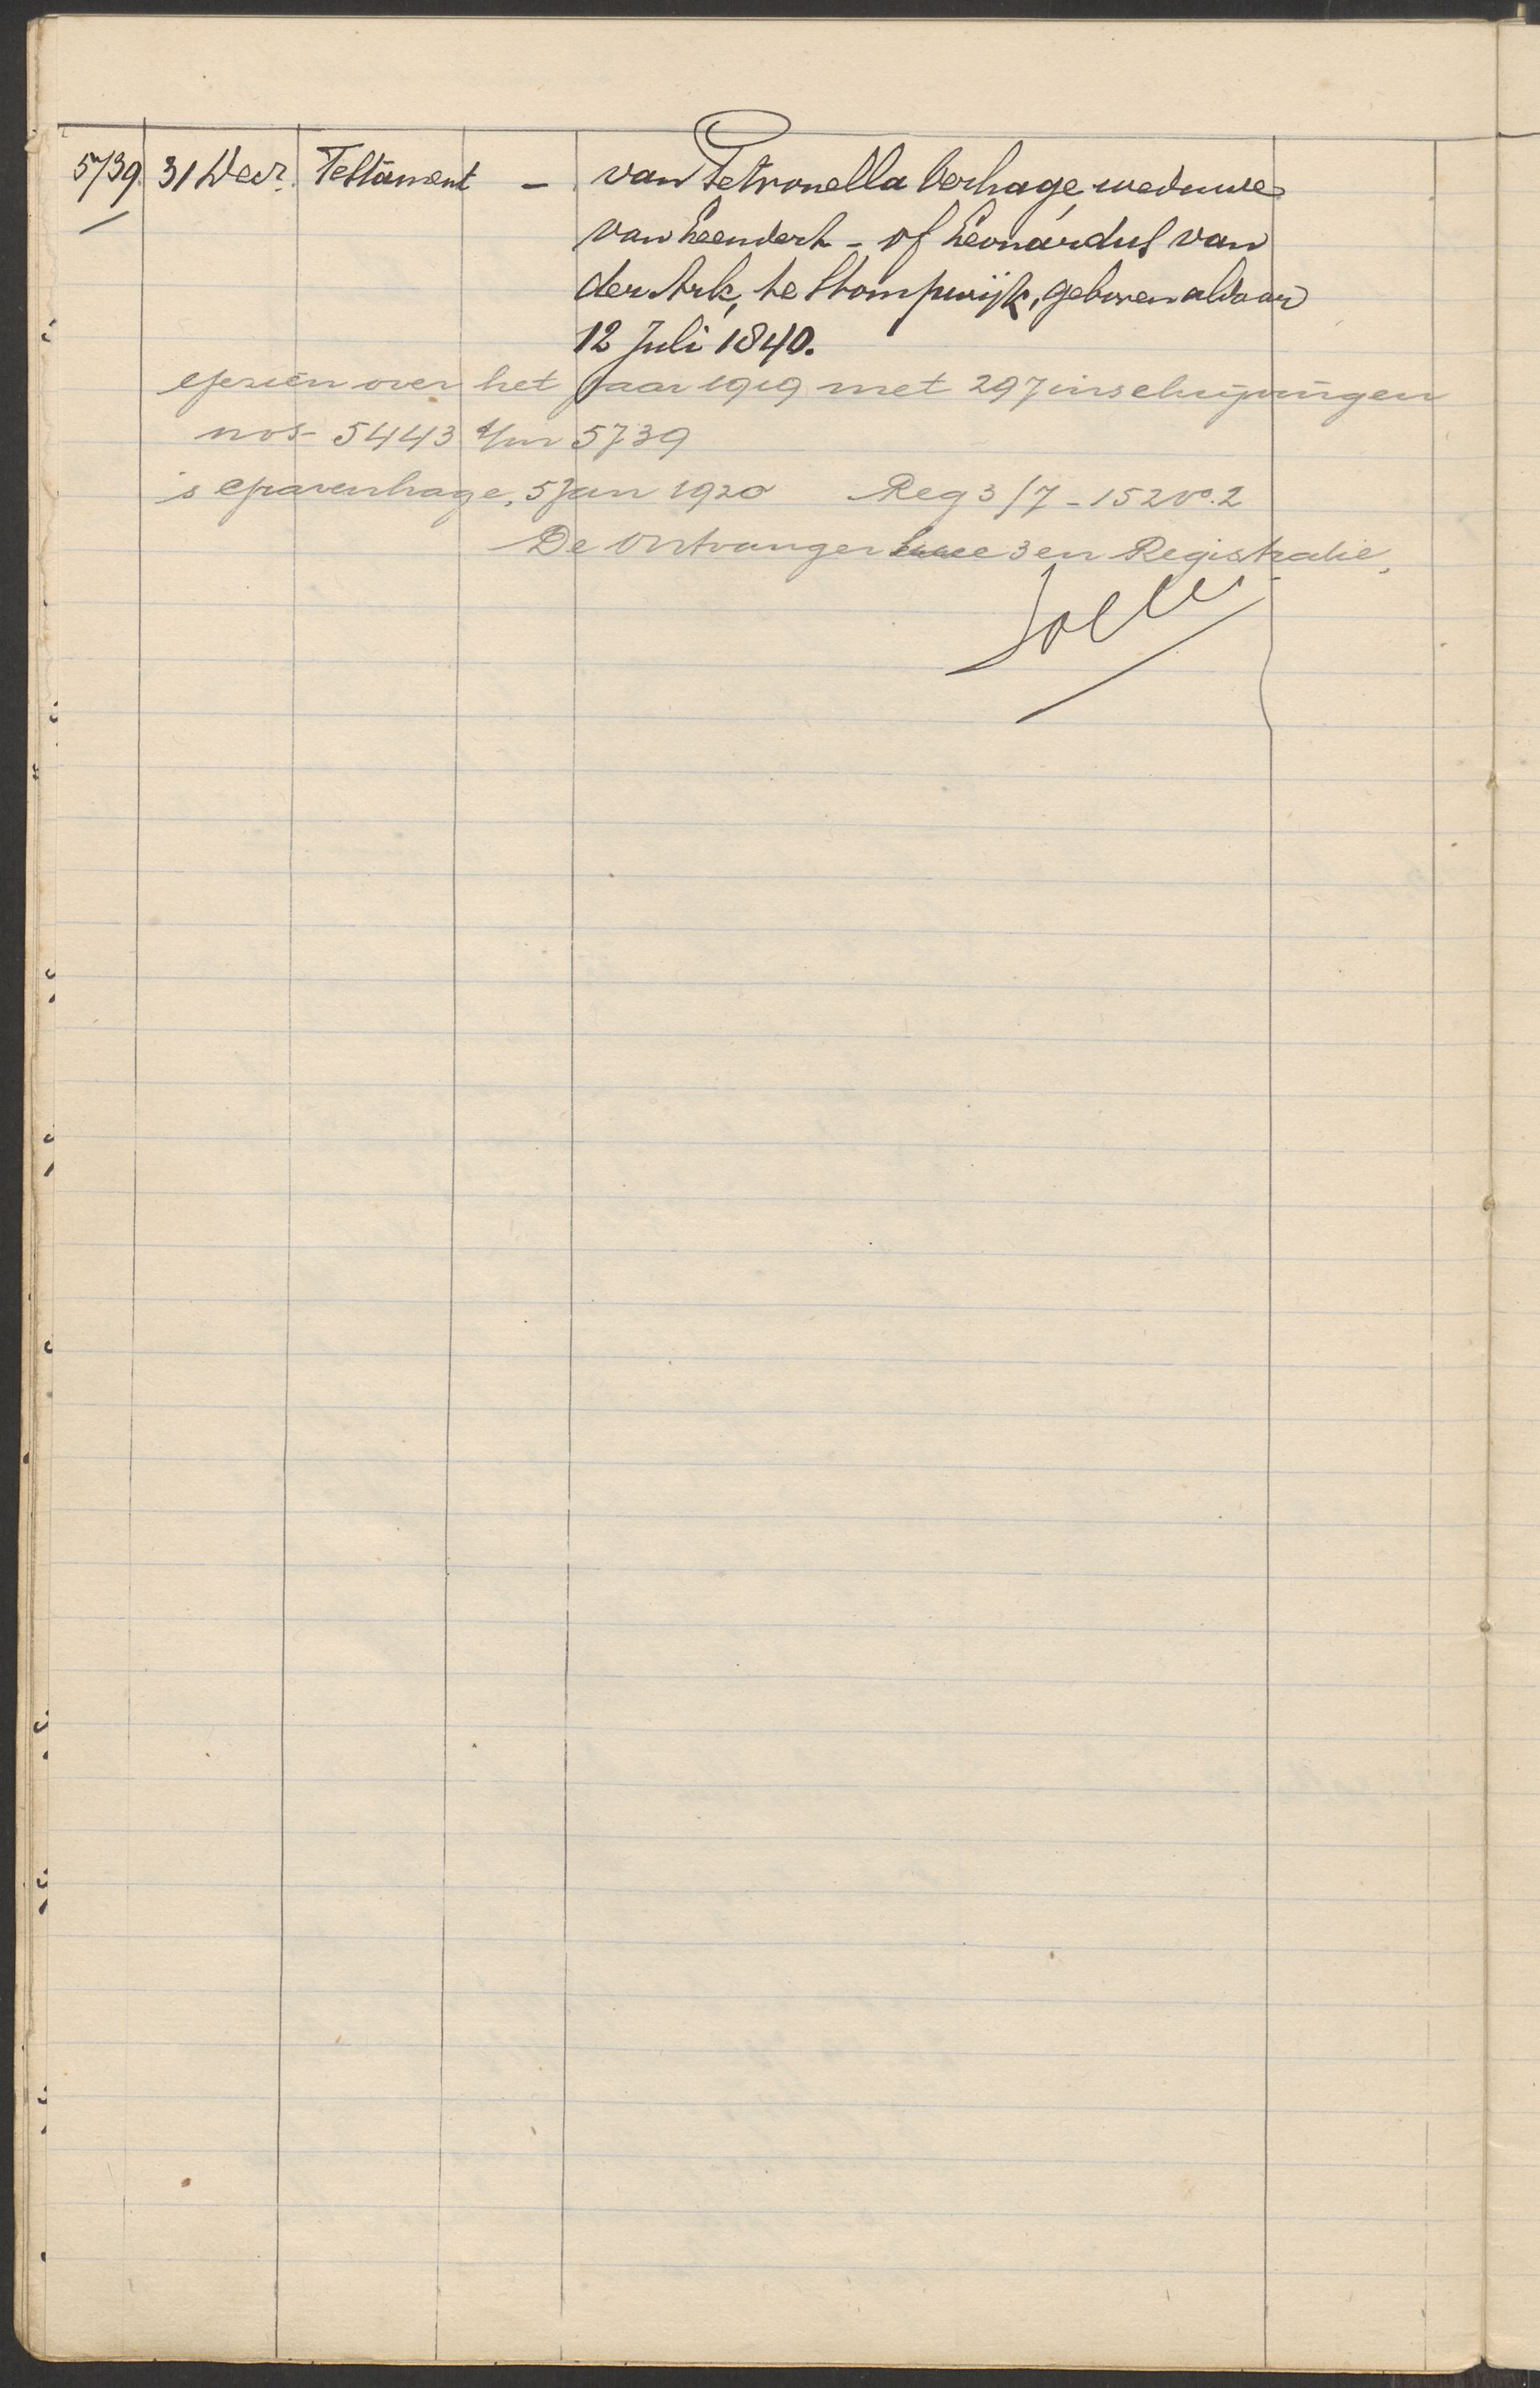 5739 31 Decr. Testament - van Petronella Verhage, weduwe
van Leendert - of Leonardus van
der Ark, te Stompwijk, geboren aldaar
12 Juli 1840.
Gezien over het jaar 1919 met 297 inschrijvingen
nos 5443 t/m 5739
's Gravenhage, 5 Jan 1920 Reg 3/7 - 152 vo. 2
De Ontvanger 3 en Registratie,